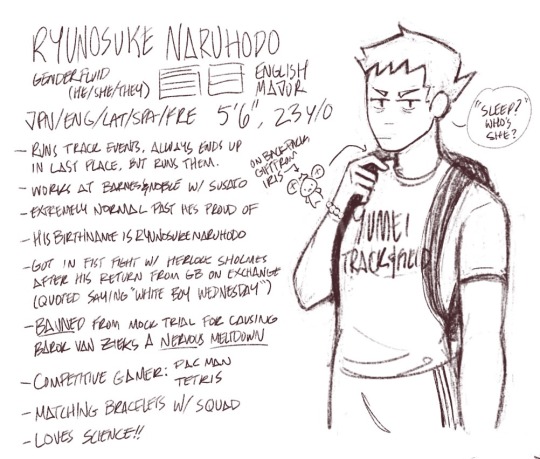 RYUNOSUKE NARUHODO
GENDERFLUID
(HE/SHE/THEY)
ENGLISH
MAJOR
JPN/ENG/LAT/SPA/FRE 5'6", 23 Y/O
- RUNS TRACK EVENTS, ALWAYS ENDS UP
IN LAST PLACE, BUT RUNS THEM.
- WORKS AT BARNES&NOBLE W/ SUSATO
- EXTREMELY NORMAL PAST HES PROUD OF
- HIS BIRTHNAME IS RYUNOSUKE NARUHODO
- GOT IN FIST FIGHT W/ HERLOCK SHOLMES
AFTER HIS RETURN FROM GB ON EXCHANGE
(QUOTED SAYING "WHITE BOY WEDNESDAY")
- BANNED FROM MOCK TRIAL FOR CAUSING
BAROK VAN ZIEKS A NERVOUS MELTDOWN
- COMPETITIVE GAMER: PAC MAN
TETRIS
- MATCHING BRACELETS W/ SQUAD
- LOVES SCIENCE!!
ON BACKPACK
GIFT FROM
IRIS
"SLEEP?
WHO'S
SHE?
YUMEI
TRACK&FIELD